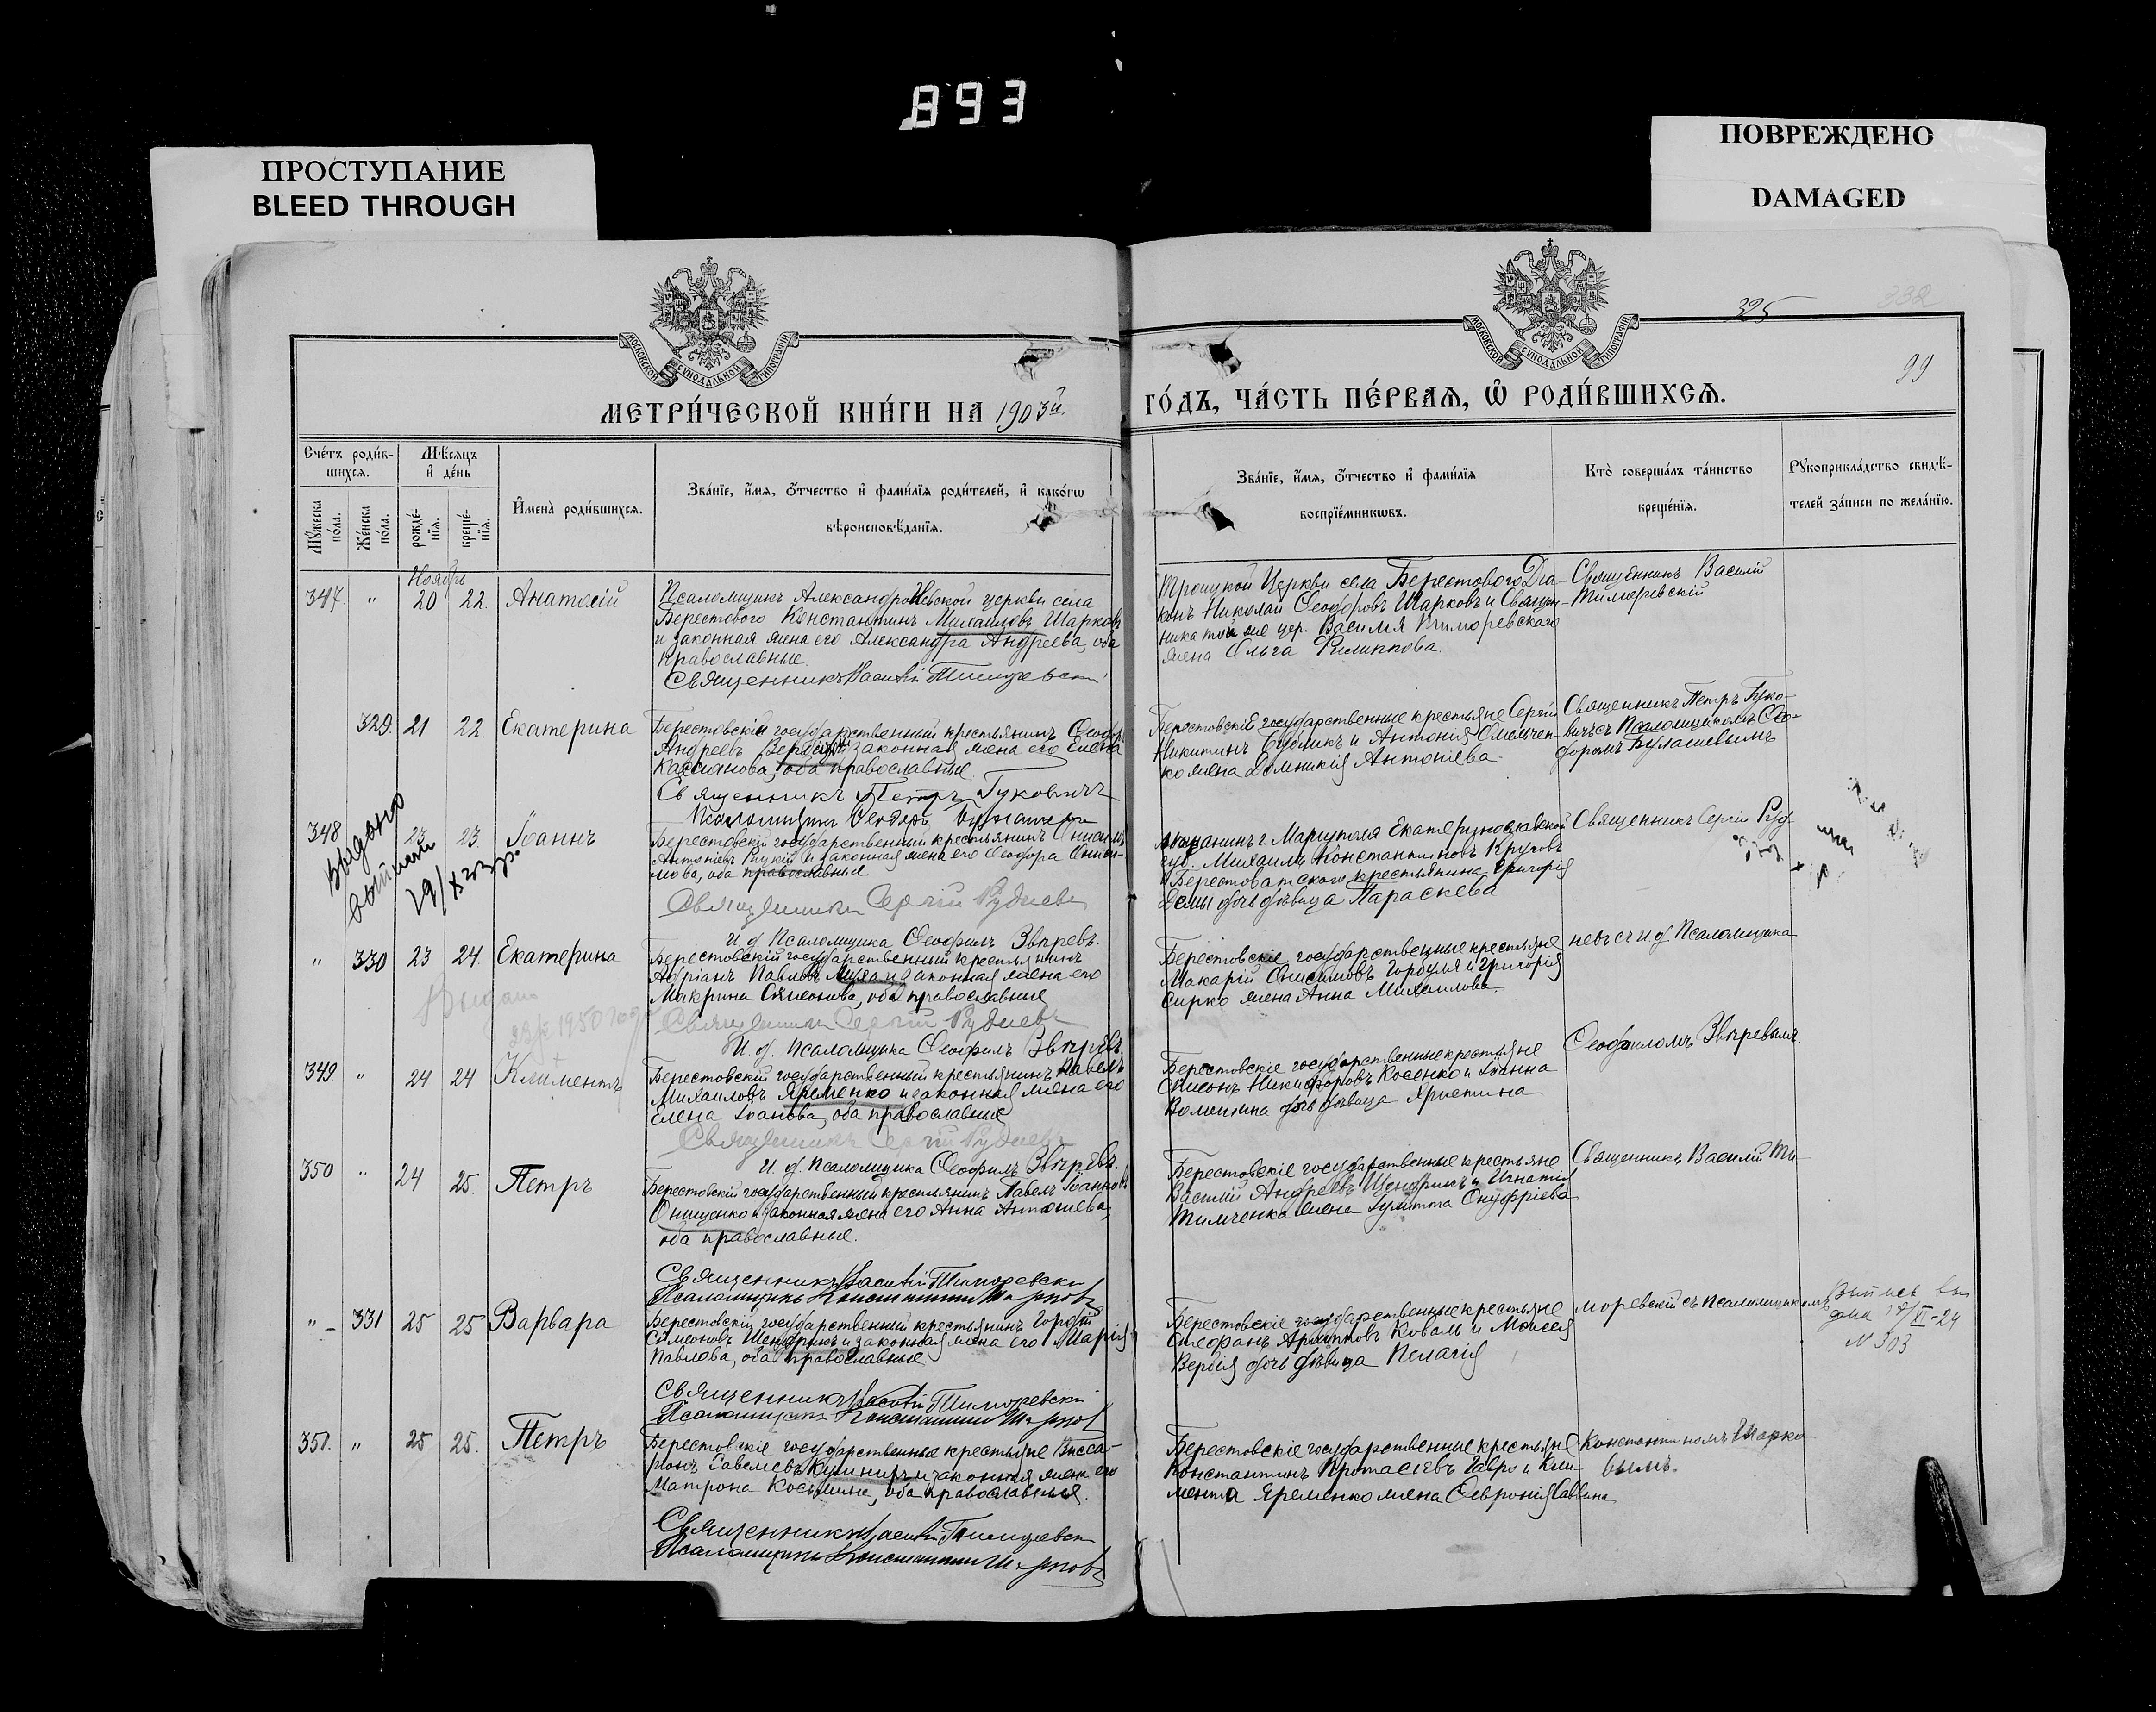 893
ПРОСТУПАНИЕ
BLEED THROUGH
ПОВРЕЖДЕНО
DAMAGED
МОСКОВСКОЙ СѴНОДАЛЬНОЙ ТИПОГРАФІИ
МОСКОВСКОЙ СѴНОДАЛЬНОЙ ТИПОГРАФІИ
325
338
99
МЕТРИ́ЧЕСКОЙ КНИ́ГИ НА 1903й
ГО́ДЪ, ЧА́СТЬ ПЕ́РВАЯ, Ѡ҆ РОДИ́ВШИХСЯ.
Сче́тъ роди́в-
шихся.
Мѣ́сяцъ
и҆ де́нь
Мꙋ́жеска по́ла.
Же́нска по́ла.
рожде́-
нїя.
креще́-
нїя.
И҆мена̀ роди́вшихся.
Зва́нїе, и҆́мя, ѻ҆́тчество и҆ фами́лїя роди́телей, и҆ како́гѡ
вѣроисповѣ́данїя.
Зва́нїе, и҆́мя, ѻ҆́тчество и҆ фами́лїя
воспрїе́мникѡвъ.
Кто̀ соверша́лъ та́инство
креще́нїя.
Рꙋкоприкла́дство свидѣ́-
телей за́писи по жела́нїю.
Ноябрь
347. " 20 22. Анатолій
Псаломщикъ Александро Невской церкви села
Берестового Константинъ Михаиловъ Шарковъ
и законная жена его Александра Андреева, оба
православные.
Священникъ Василій Тиморевскій
Троицкой Церкви села Берестового Діа-
конъ Николай Ѳеодоровъ Шарковъ и Священ-
ника той же цер. Василія Тиморевскаго
жена Ольга Филиппова.
Священникъ Василій
Тиморевскій
329. 21 22. Екатерина
Берестовскій государственный крестьянинъ Ѳеодоръ
Андреевъ законная жена его Елена
Кассианова, оба православные.
Священникъ Петръ Гуковичъ
Псаломщикъ Ѳеодоръ Булашевъ
Берестовскіе государственные крестьяне Сергій
Никитинъ и Антонія Омельчен-
ко жена Домникія Антоніева.
Священникъ Петръ Гуко-
вичъ съ Псаломщикомъ Ѳео-
доромъ Булашевымъ
348 23 23. Іоаннъ
Выдано
19/X 23 г.
Берестовскій государственный крестьянинъ Онисимъ
Антоніевъ и законная жена его Ѳеодора Ониси-
мова, оба православные
Священникъ Сергій Рудневъ
И. д. Псаломщика Ѳеофилъ Звѣревъ.
Мѣщанинъ г. Маріуполя Екатеринославской
губ. Михаилъ Константиновъ Круговъ
и Берестоватского крестьянина Григорія
дочь дѣвица Параскева
Священникъ Сергій Руд-
" 330 23 24. Екатерина
Выдано
1950 года
Берестовскій государственный крестьянинъ
Адріанъ Павловъ Муха и законная жена его
Макрина Симонова, оба православные
Священникъ Сергій Рудневъ
И. д. Псаломщика Ѳеофилъ Звѣревъ.
Берестовскіе государственные крестьяне
Макарій Онисимовъ Горбуля и Григорія
Сирко жена Анна Михаилова.
невъ съ и. д Псаломщика
349. " 24 24 Климентъ
Берестовскій государственный крестьянинъ Павелъ
Михаиловъ Яременко и законная жена его
Елена Іоанова, оба православные
Священникъ Сергій Рудневъ
И. д. Псаломщика Ѳеофилъ Звѣревъ.
Берестовскіе государственные крестьяне
Симонъ Никифоровъ Косенко и Іоанна
Волошина дочь дѣвица Христина
Ѳеофиломъ Звѣревымъ.
350 " 24 25. Петръ
Берестовскій государственный крестьянинъ Павелъ Іоанновъ
Онищенко и законная жена его Анна Антоніева,
оба православные.
Священникъ Василій Тиморевскій
Псаломщикъ Константинъ Шарковъ
Берестовскіе государственные крестьяне
Василій Андреевъ Шендрикъ и Игнатія
Тимченка жена Іулитта Онуфріева
Священникъ Василій Ти-
" 331 25 25 Варвара
Берестовскій государственный крестьянинъ Гордій
Симеоновъ Шендрикъ и законная жена его Марія
Павлова, оба православные
Священникъ Василій Тиморевскій
Псаломщикъ Константинъ Шарковъ
Берестовскіе государственные крестьяне
Стефанъ Архиповъ Коваль и Моисея
Вербія дочь дѣвица Пелагія
моревскій съ псаломщикомъ
Выпись вы
дана 17/XI-24
N 303
351. " 25 25. Петръ
Берестовскіе государственные крестьяне Висса-
ріонъ Савеліевъ Кушниръ и законная жена его
Матрона Косьмина, оба православные.
Священникъ Василій Тиморевскій
Псаломщикъ Константинъ Шарковъ
Берестовскіе государственные крестьяне
Константинъ Протасіевъ Гавро и Кли-
мента Яременко жена Ѳевронія Саввина
Константиномъ Шарко-
вымъ.